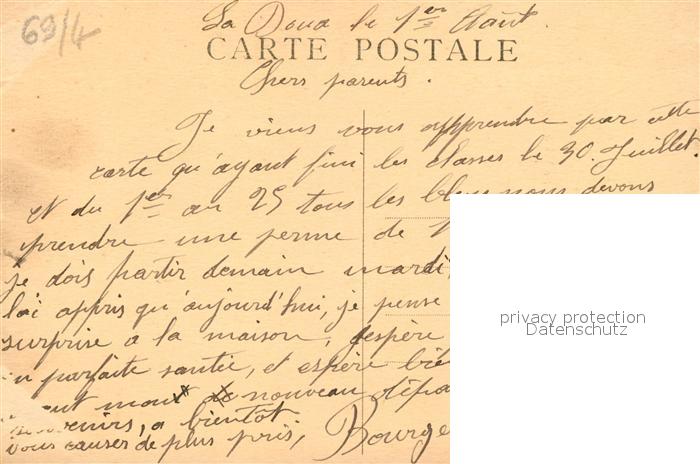 69/4
La Doua le 1er Août.
CARTE POSTALE
Chers parents.
Je viens vous apprendre par cette
carte qu'ayant fini les classes le 30 Juillet
et du 1er au 25 tous les bleus nous devons
prendre une perme de
je dois partir demain mardi,
l'ai appris qu'aujourd'hui, je pense
surprise a la maison, j'espère
en parfaite santée, et espère bie
mon nouveau dépa
a bientôt
vous causer de plus près,
Bourge
privacy protection
Datenschutz